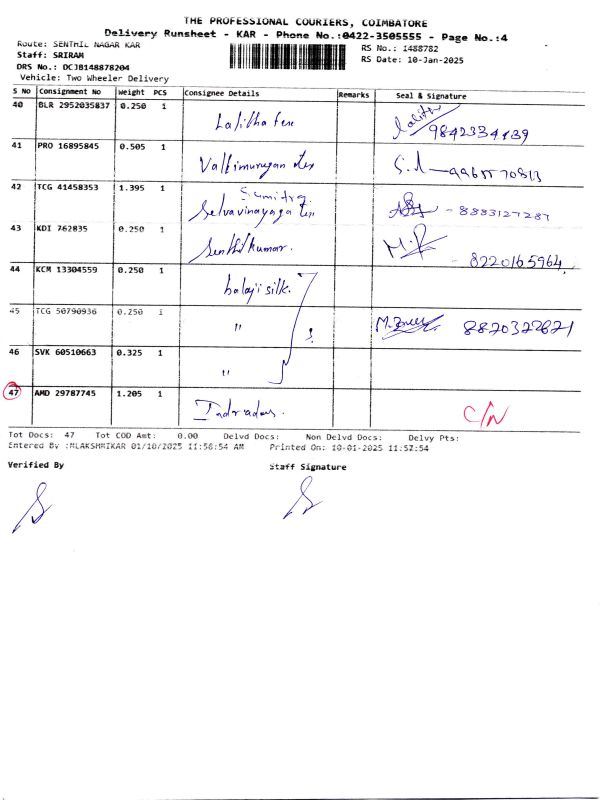 THE PROFESSIONAL COURIERS, COIMBATORE
Delivery Runsheet - KAR - Phone No.:0422-3505555 - Page No.:4
Route: SENTHIL NAGAR KAR
RS No.: 1488782
Staff: SRIRAM
RS Date: 10-Jan-2025
DRS No.: DCJB148878204
Vehicle: Two Wheeler Delivery
S No Consignment No Weight PCS Consignee Details Remarks Seal & Signature
40 BLR 2952035837 0.250 1 Lalitha Lalith 9842334139
41 PRO 16895845 0.505 1 Valtimurugan Tex
42 TCG 41458353 1.395 1 Sumitra Selvavinayaga Tex - 8883127287
43 KDI 762835 0.250 1 Senthilkumar. - 8220165964
44 KCM 13304559 0.250 1 balaji silk.
45 TCG 50790936 0.250 1 " 8820322621
46 SVK 60510663 0.325 1 "
47 AMD 29787745 1.205 1 Indradas. C/N
Tot Docs: 47 Tot COD Amt: 0.00 Delvd Docs: Non Delvd Docs: Delvy Pts:
Entered By :MLAKSHMIKAR 01/10/2025 11:56:54 AM Printed On: 10-01-2025 11:57:54
Verified By Staff Signature